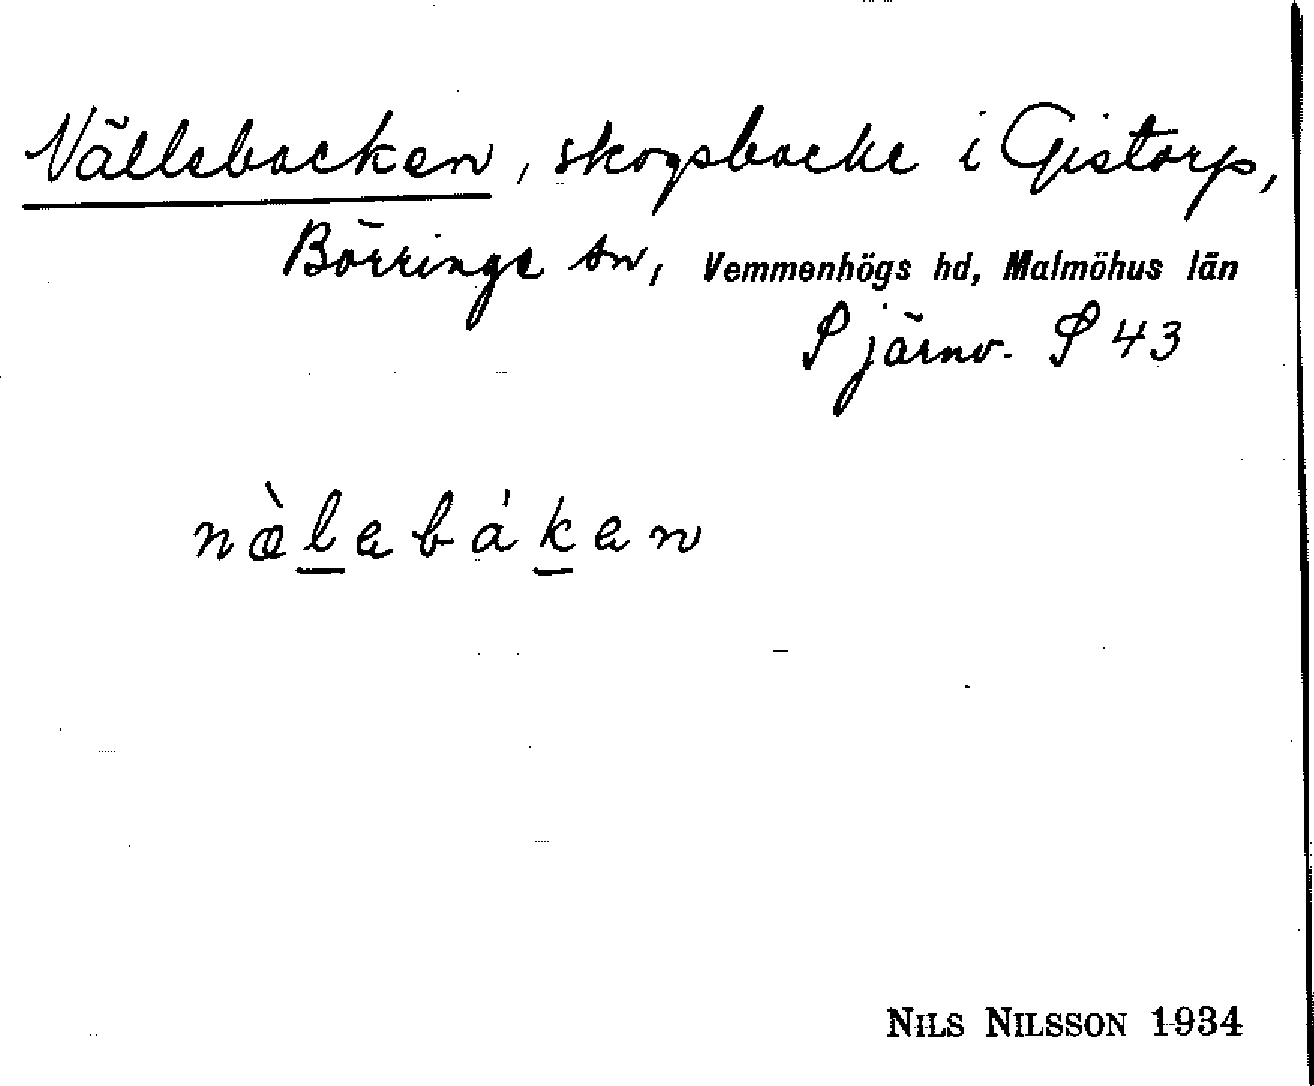 Nällebacken, skogsbacke i Gistorp,
Börringe sn, Vemmenhögs hd, Malmöhus län
S järnv. S 43
nàlebákan
NILS NILSSON 1934